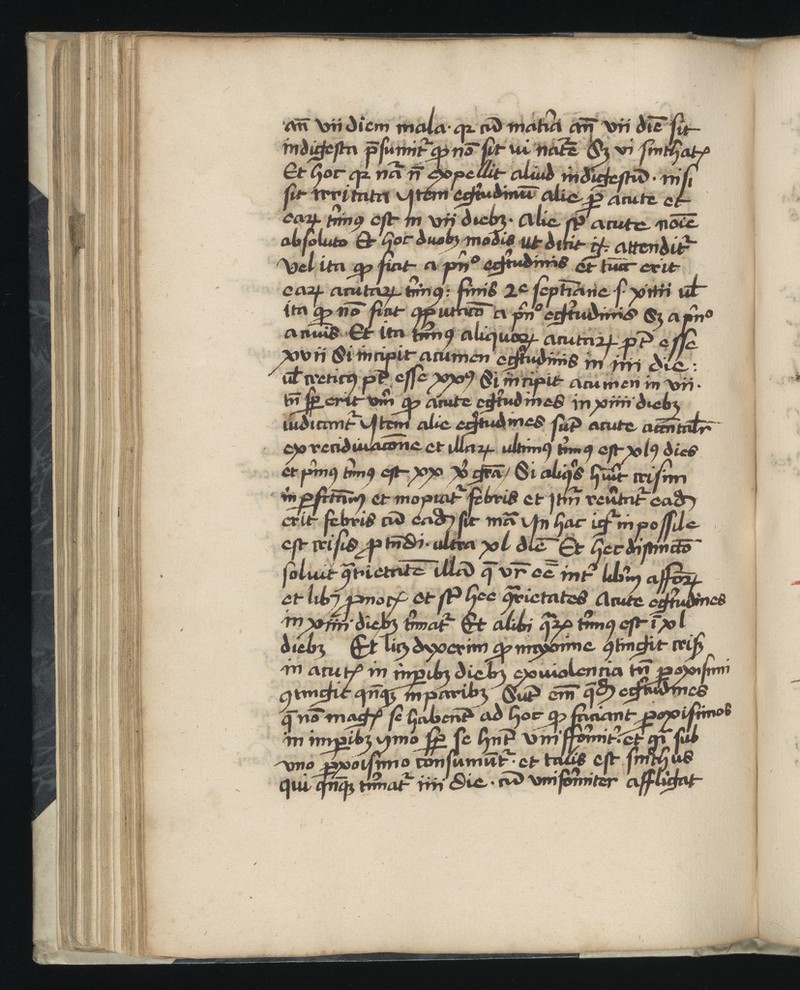 an̄ vii diem mala · qr cū mat̄ia an̄ vii diē sit
indigesta p̄sumit᷑ qꝫ nō sit vi nat̄e Sꝫ vi sinthat
Et hoc qr nā n̄ expellit aliud indigestū · nisi
sit irritata Itē egritudinū alie ꝑ acute et
eaꝝ t̄mi9 est in vii diebꝫ · Alie sꝫ acute noīe
absoluto Et hoc duobꝫ modis ut dicit g · attendit᷑
vel ita qꝫ fiat a pn̊ egritudinis et tūc erit
eaꝝ acutaꝝ t̄mi9 : finis 2e septiane · s xiiii ul̄
ita qꝫ nō fiat a pn̊ egritudinis Sꝫ a pn̊
Et ita t̄mi9 aliquoꝝ acutaꝝ pt̄ esse
xvii Si incipit acumen egritudinis in iiii die :
ul̄ creticꝰ pt̄ esse xx9 Si incipit acumen in vii ·
tn̄ sꝑ erit vm̄ qꝫ acute egritudines in xiiii diebꝫ
iudicant᷑ Item alie egritudines sūt acute
ex recidiuacōne et illaꝝ ultimꝰ t̄mi9 est xl9 dies
et p̄mꝰ t̄mi9 est xx Si aliq's hūit crisim
in ꝑfectam et febris et it̄m reūtat᷑ eadꝫ
erit febris cū eadꝫ sit mā In hac igr̄ inpossile
est crisis · ultra xl diē Et hec distinctō
soluit q̄rietatē illā q̄ vr̄ eē int̄ libꝝ afforꝝ
et libꝫ pnocꝫ et sꝫ hec q̄rietates Acute egritudines
in xiiii diebꝫ t̄mat᷑ Et alibi q̄ꝝ t̄mi9 est ī xl
diebꝫ Et licꝫ dixerim qꝫ maxime ꝯtingit cris
in acutꝫ in inparibꝫ diebꝫ ex violencia tn̄ ꝑoxisimi
ꝯtingit qn̄qꝫ in paribꝫ Sūt em̄ q̄dā egritudines
q̄ nō magꝫ se habent ad hoc qꝫ faciant ꝑoxisimos
in imparibꝫ ymo sꝑ se hn̄t vniformit᷑ · et qr̄ sub
vno ꝑxoisimo consumūt᷑ · et talis est sinthus
qui qn̄qꝫ t̄mat᷑ iiii die · cū vniformiter affligat